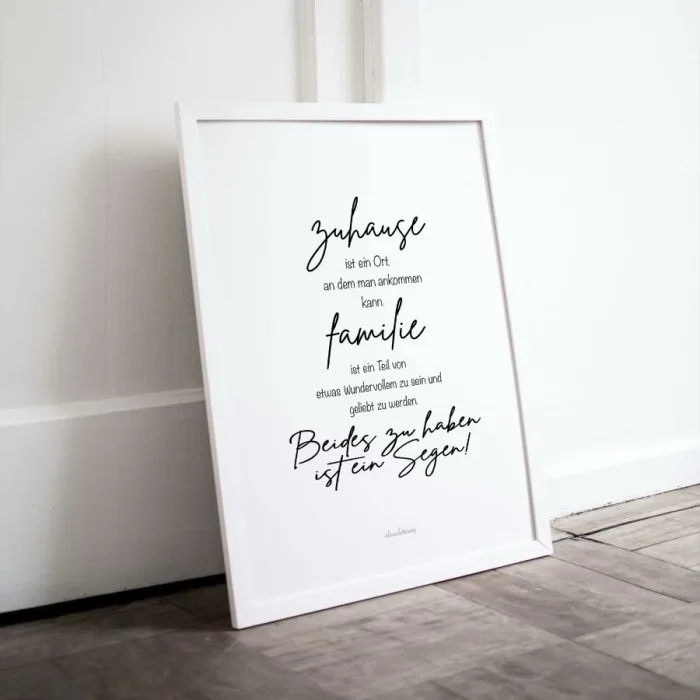 zuhause
ist ein Ort,
an dem man ankommen
kann.
familie
ist ein Teil von
etwas Wundervollem zu sein und
geliebt zu werden.
Beides zu haben
ist ein Segen!